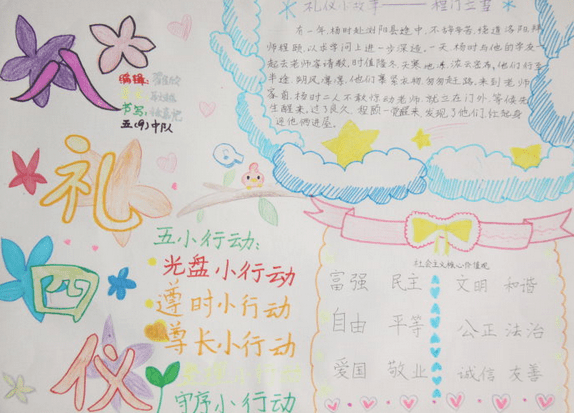 八
礼
四
仪
编辑:
书写:
五(9)中队
礼仪小故事——程门立雪
有一年,杨时赴浏阳县途中,不辞劳苦,绕道洛阳,拜
师程颐,以求学问上进一步深造,一天,杨时与他的学友一
起去老师家请教,时值隆冬,天寒地冻,浓云密布,他们行至
半途,朔风凛凛,他们裹紧衣物,匆匆赶路,来到老师
家首,杨时二人不敢惊动老师,就立在门外,等候先
生醒来,过了良久,程颐一觉醒来,发现了他们,让他身
进他俩进屋。
五小行动:
光盘小行动
遵时小行动
尊长小行动
守序小行动
社会主义核心价值观
富强 民主 文明 和谐
自由 平等 公正 法治
爱国 敬业 诚信 友善